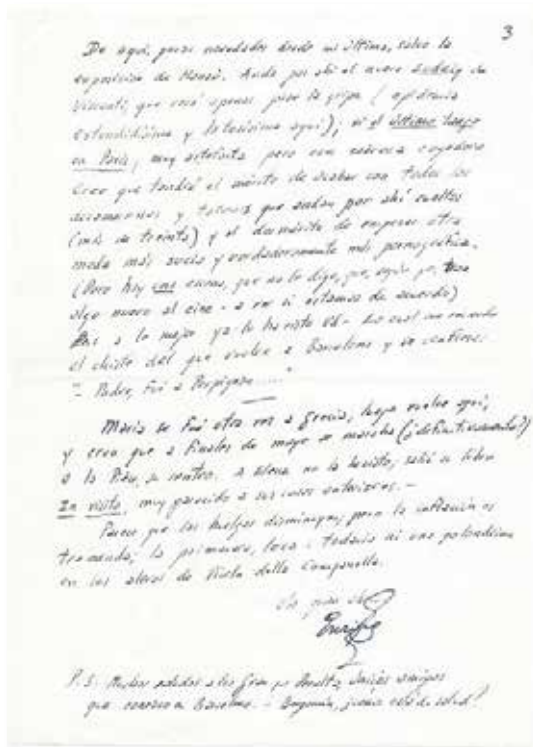 3
De aquí, pocas novedades desde mi última, salvo la
exposición de Manzú. Anda por ahí el nuevo Ludwig de
Visconti, que veré apenas pase la gripe ( epidemia
extendidísima y latosísima aquí); vi el último tango
en París, muy esteticista pero con
Creo que tendrá el mérito de acabar con todos los
decamerones y que andan por ahí sueltos
(más de treinta) y el demérito de empezar otra
moda más sucia y verdaderamente más pornográfica.
(Pero hay que no lo digo, que, según yo, trae
algo nuevo al cine - a ver si estamos de acuerdo)
a lo mejor ya lo ha visto Vd - Lo cual me recuerda
el chiste del que vuelve a Barcelona y se confiesa:
"- Padre, fui a Perpignan....."
María se fué otra vez a Grecia, luego vuelve aquí,
y creo que a finales de mayo se marcha (¿definitivamente?)
a la a la he visto; salió su libro
In visita, muy parecido a sus cosas anteriores. -
Parece que las huelgas disminuyen, pero la inflación es
tremenda; la primavera, loca: todavía ni una golondrina
en los aleros de Vicolo della Campanella.
Un gran
Enrique
P.S. Muchos saludos a los amigos
que conozco en Barcelona. - ¿cómo está de salud?